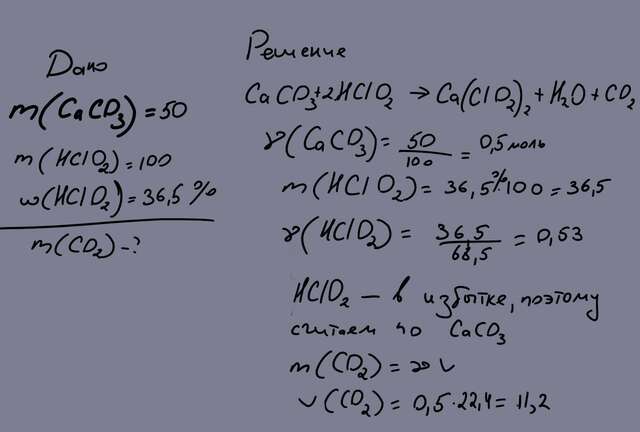 Дано
m(CaCO3) = 50
m(HClO2) = 100
w(HClO2) = 36,5 %
m(CO2) - ?
Решение
CaCO3 + 2HClO2 → Ca(ClO2)2 + H2O + CO2
γ(CaCO3) = 50/100 = 0,5 моль
m(HClO2) = 36,5% 100 = 36,5
γ(HClO2) = 36,5/68,5 = 0,53
HClO2 – в избытке, поэтому
считаем по CaCO3
m(CO2) = γ V
V(CO2) = 0,5·22,4 = 11,2